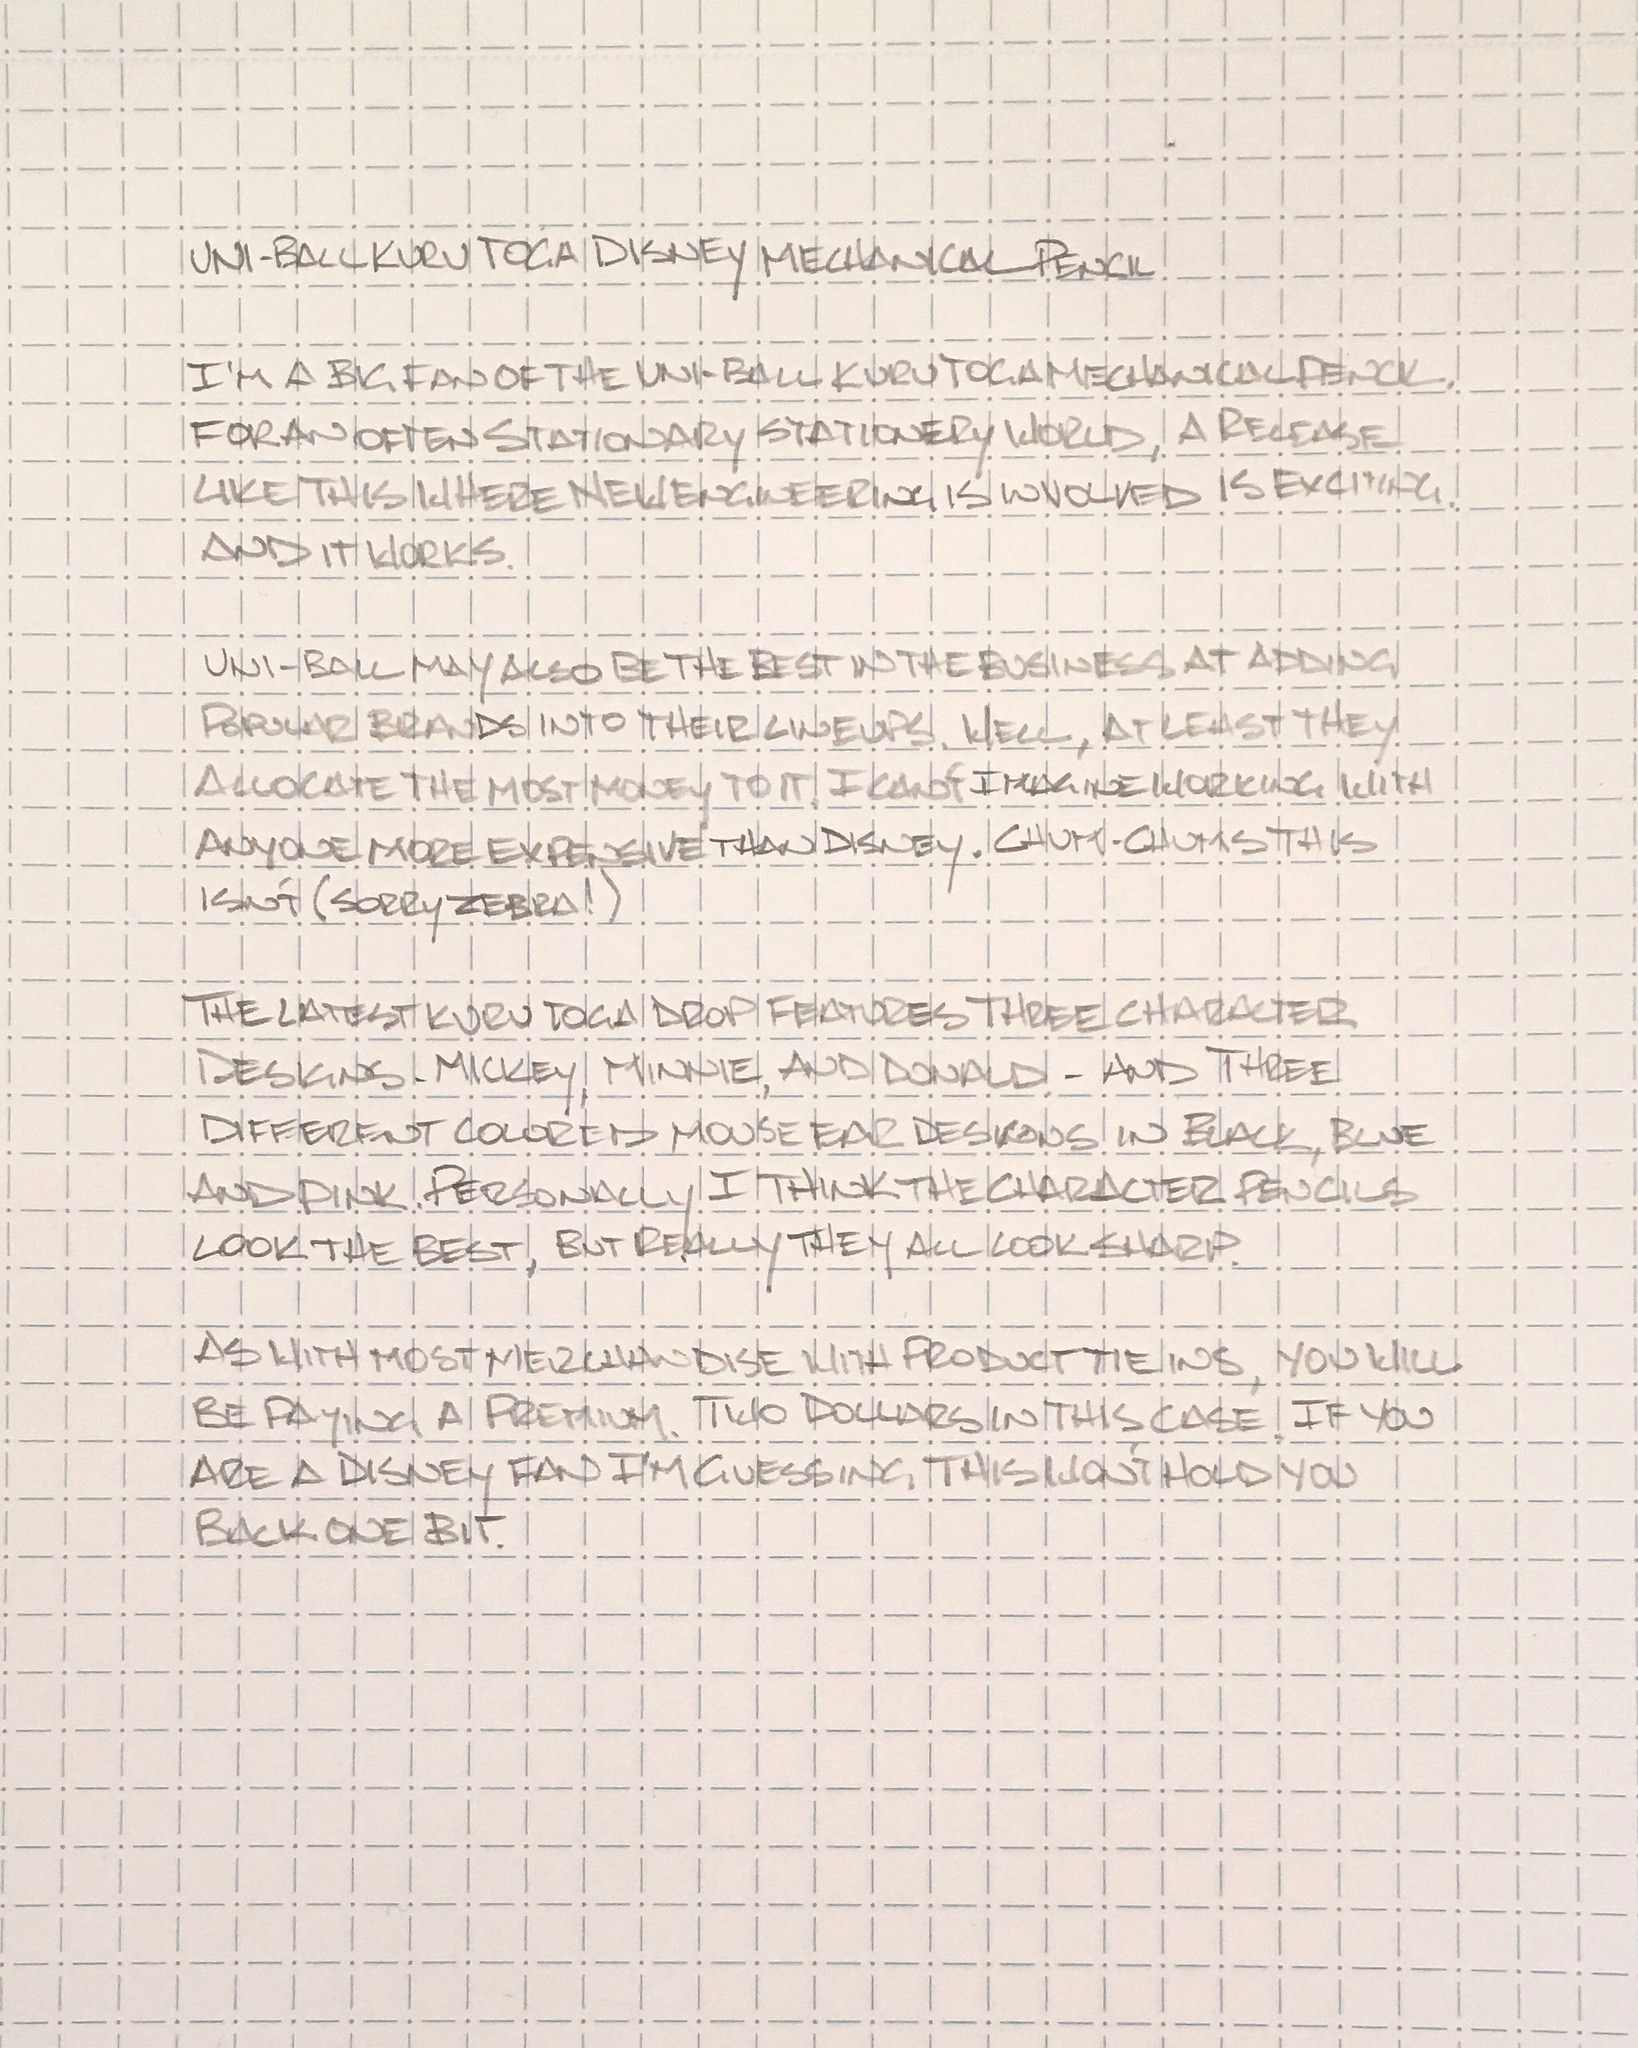 UNI-BALL KURU TOGA DISNEY MECHANICAL PENCIL
I'M A BIG FAN OF THE UNI-BALL KURU TOGA MECHANICAL PENCIL.
FOR AN OFTEN STATIONARY STATIONERY WORLD, A RELEASE
LIKE THIS WHERE NEW ENGINEERING IS INVOLVED IS EXCITING.
AND IT WORKS.
UNI-BALL MAY ALSO BE THE BEST IN THE BUSINESS AT ADDING
POPULAR BRANDS INTO THEIR LINEUPS. WELL, AT LEAST THEY
ALLOCATE THE MOST MONEY TO IT. I CAN'T IMAGINE WORKING WITH
ANYONE MORE EXPENSIVE THAN DISNEY. CHUM-CHUMS THIS
ISN'T (SORRY ZEBRA!)
THE LATEST KURU TOGA DROP FEATURES THREE CHARACTER
DESIGNS - MICKEY, MINNIE, AND DONALD - AND THREE
DIFFERENT COLORED MOUSE EAR DESIGNS IN BLACK, BLUE
AND PINK. PERSONALLY I THINK THE CHARACTER PENCILS
LOOK THE BEST, BUT REALLY THEY ALL LOOK SHARP.
AS WITH MOST MERCHANDISE WITH PRODUCT TIE INS, YOU WILL
BE PAYING A PREMIUM. TWO DOLLARS IN THIS CASE. IF YOU
ARE A DISNEY FAN I'M GUESSING THIS WON'T HOLD YOU
BACK ONE BIT.